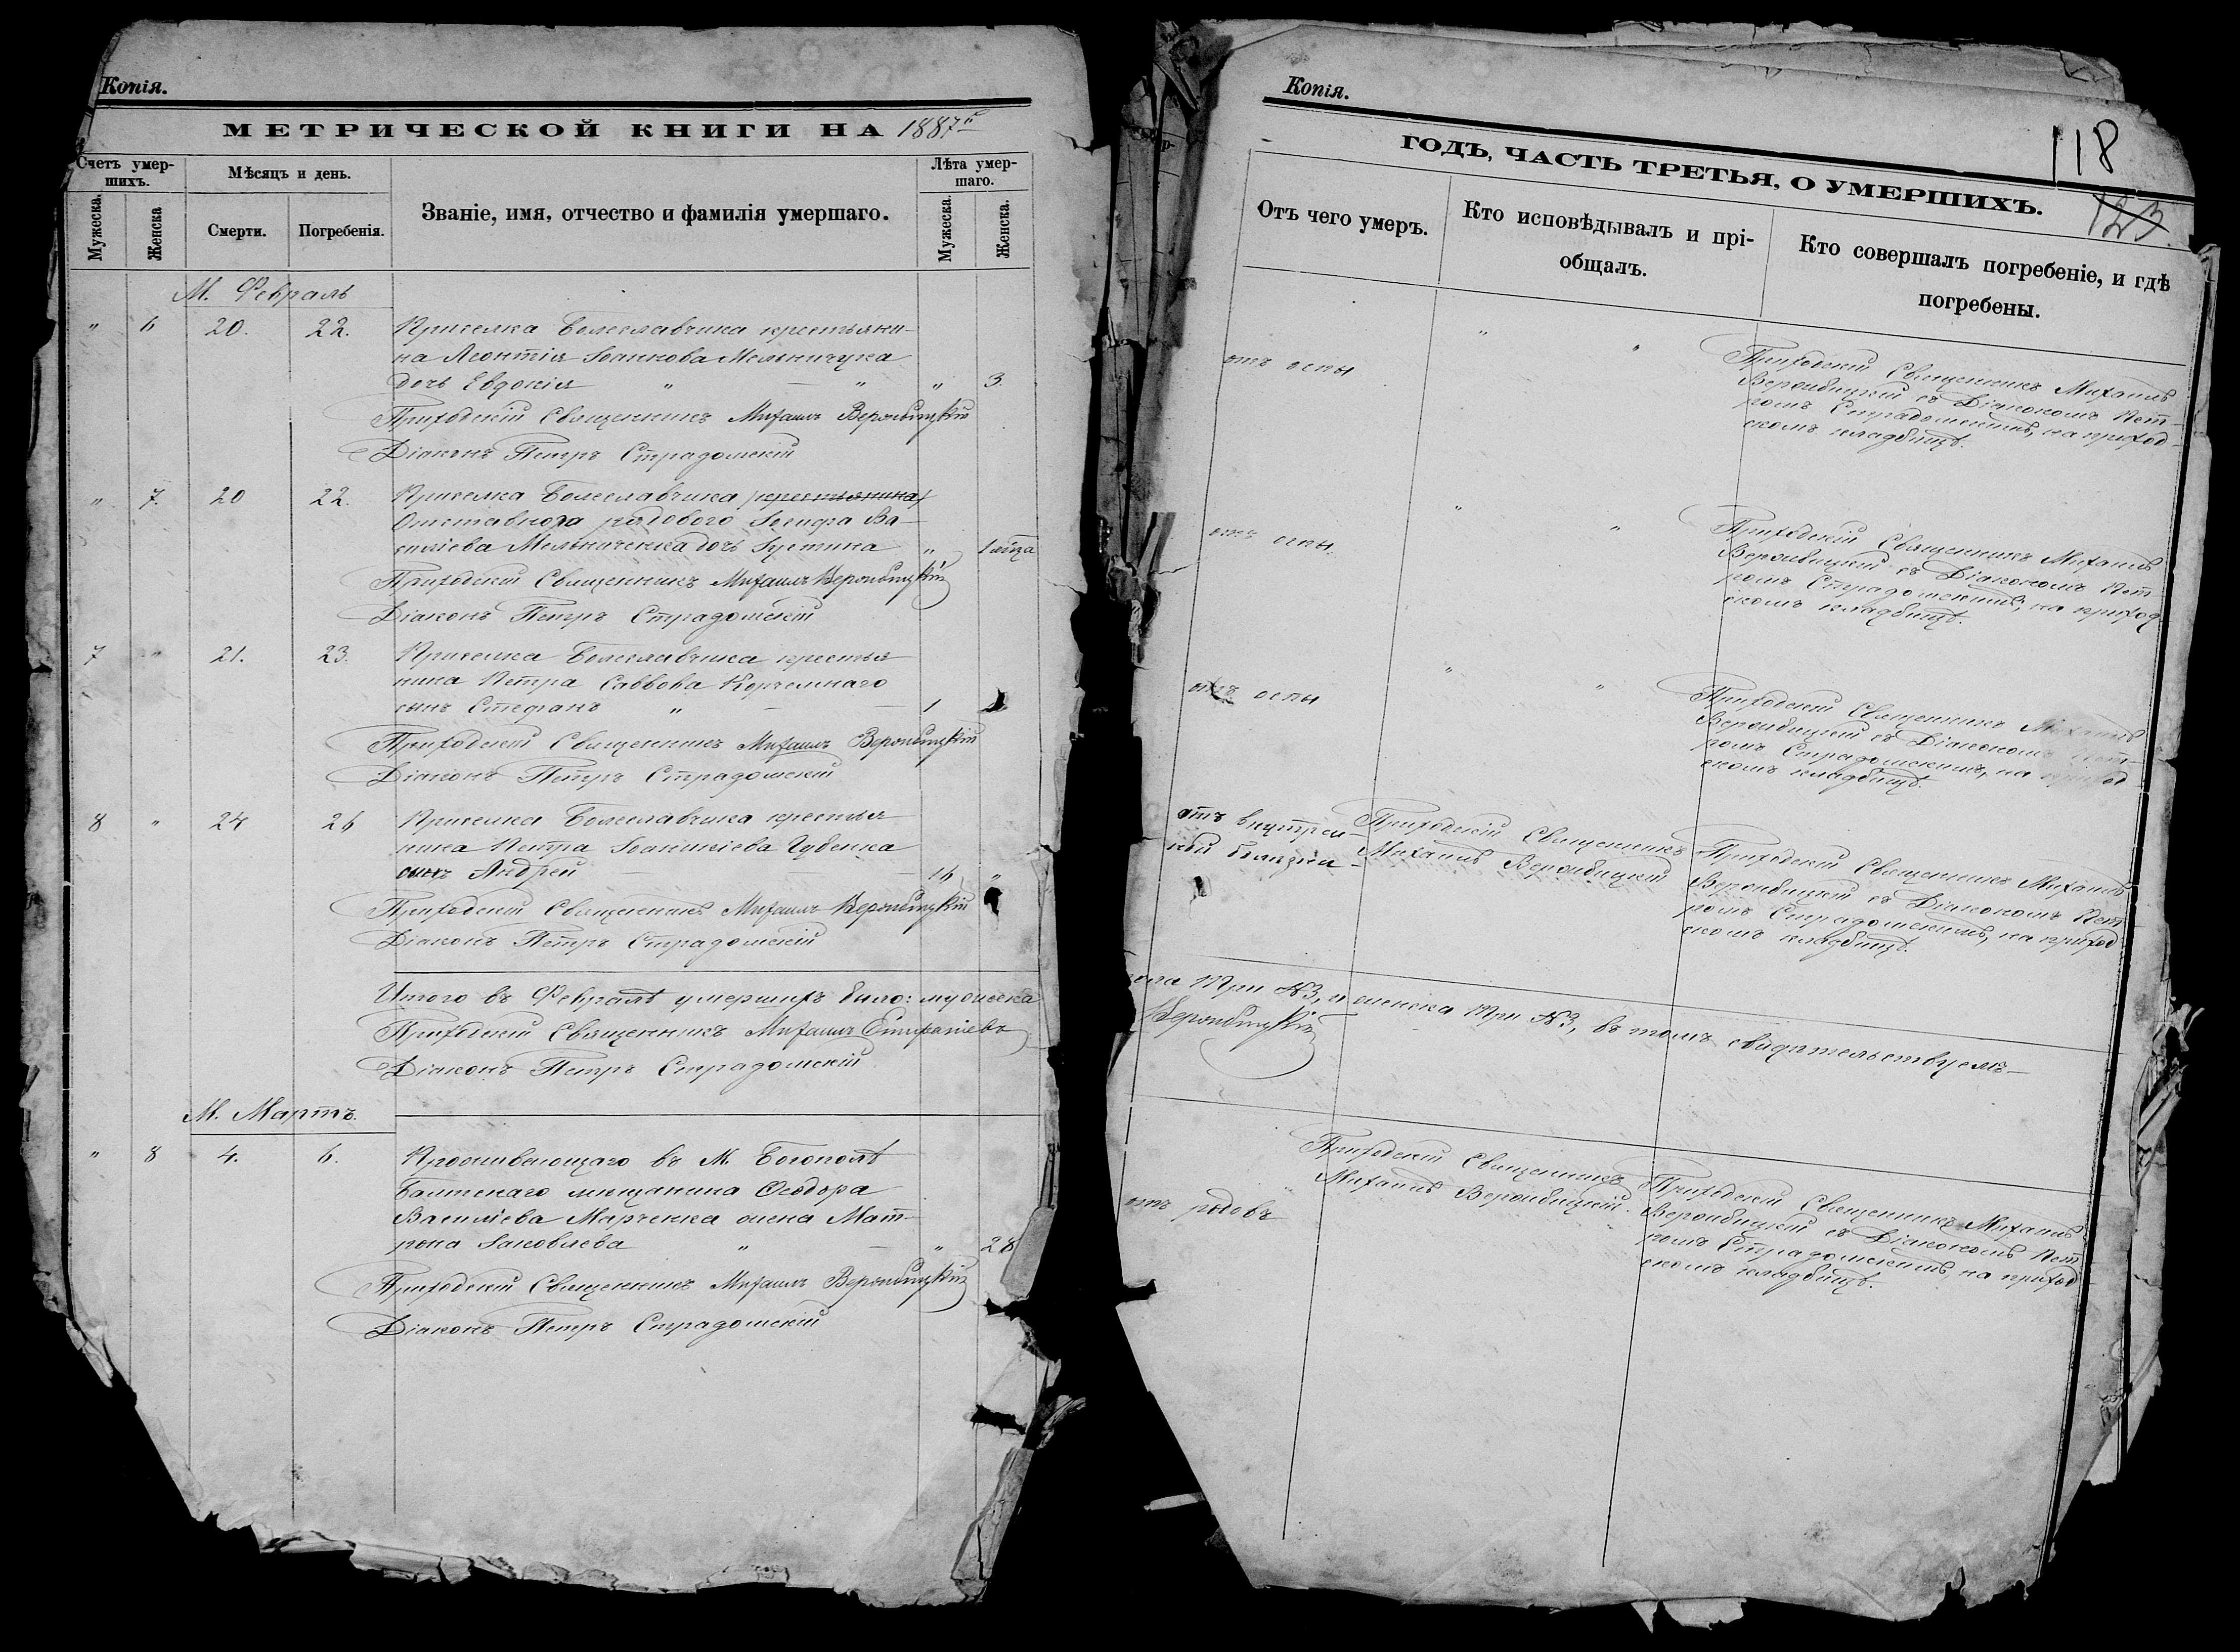 Копія.
МЕТРИЧЕСКОЙ КНИГИ НА 1887й
Счетъ умер-
шихъ.
Мѣсяцъ и день.
Званіе, имя, отчество и фамилія умершаго.
Лѣта умер-
шаго.
Мужеска.
Женска
Смерти.
Погребенія.
Мужеска.
Женска.
М. Февраль
" 6 20. 22. Приселка Болеславчика крестьяни-
на Леонтія Іоаннова Мельничука
дочь Евдокія " — " " 3.
Приходскій Священникъ Михаилъ Вероибицкій
Діаконъ Петръ Страдомскій
" 7. 20 22. Приселка Болеславчика /крестьянина/
Отставного рядового Іосифа Ва-
силіева Мельниченка дочь Іустина " 1 мѣца
Приходскій Священникъ Михаилъ Вероибицкій
Діаконъ Петръ Страдомскій
7 " 21. 23. Приселка Болеславчика крестья-
нина Петра Саввова Корчемнаго
сынъ Стефанъ " — — 1
Приходскій Священникъ Михаилъ Вероибицкій
Діаконъ Петръ Страдомскій
8 " 24 26 Приселка Болеславчика крестья-
нина Петра Губенка
сынъ Андрей — — — 16 "
Приходскій Священникъ Михаилъ Вероибицкій
Діаконъ Петръ Страдомскій
Итого въ Февралѣ умершихъ было: мужеска
Приходскій Священникъ Михаилъ
Діаконъ Петръ Страдомскій
М. Мартъ.
" 8 4. 6. Проживающаго въ М. Богополѣ
Балтскаго мѣщанина Ѳеодора
Василіева Марченка жена Мат-
рона Іаковлева " — " 28
Приходскій Священникъ Михаилъ Вероибицкій
Діаконъ Петръ Страдомскій
Копія.
118
ГОДЪ, ЧАСТЬ ТРЕТЬЯ, О УМЕРШИХЪ.
123
Отъ чего умеръ.
Кто исповѣдывалъ и прі-
общалъ.
Кто совершалъ погребеніе, и гдѣ
погребены.
отъ оспы " "
Приходскій Священникъ Михаилъ
Вероибицкій съ Діакономъ Пет-
ромъ Страдомскимъ, на приход-
скомъ кладбищѣ.
отъ оспы. " "
Приходскій Священникъ Михаилъ
Вероибицкій съ Діакономъ Пет-
ромъ Страдомскимъ, на приход
скомъ кладбищѣ.
отъ оспы " "
Приходскій Священникъ Михаилъ
Вероибицкій съ Діакономъ Пет-
ромъ Страдомскимъ, на приход
скомъ кладбищѣ.
отъ внутрен-
ней болѣзни
Приходскій Священникъ
Михаилъ Вероибицкій
Приходскій Священникъ Михаилъ
Вероибицкій съ Діакономъ Пет
ромъ Страдомскимъ, на приход
скомъ кладбищѣ.
пола три №3, и женска три №3, въ томъ свидѣтельствуемъ—
Вероибицкій
отъ родовъ
Приходскій Священникъ
Михаилъ Вероибицкій.
Приходскій Священникъ Михаилъ
Вероибицкій съ Діакономъ Пет
ромъ Страдомскимъ, на приход
скомъ кладбищѣ.